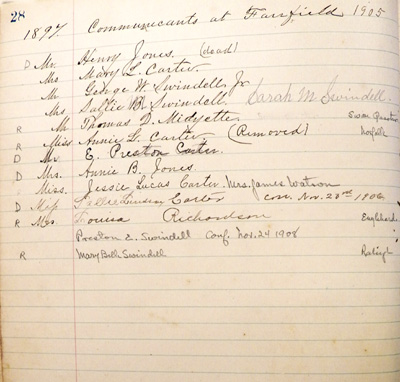 28
1897. Communicants at Fairfield 1905
D Mr. Henry Jones. (dead)
Mrs Mary L. Carter.
Mr George W. Swindell, Jr.
Mrs. Sallie B. Swindell. Sarah M. Swindell.
R Mr Thomas D. Midyette Swan Quarter
R Miss Annie L. Carter. (Removed) Norfolk
D Mr. E. Preston Carter.
D Mrs. Annie B. Jones.
Miss. Jessie Lucas Carter. Mrs. James Watson
D Miss Sallie Lindsay Carter con. Nov. 28th 1906
R Mrs. Louisa Richardson Englehard.
Preston E. Swindell Conf. Nov. 24 1908
R Mary Bell Swindell Raleigh